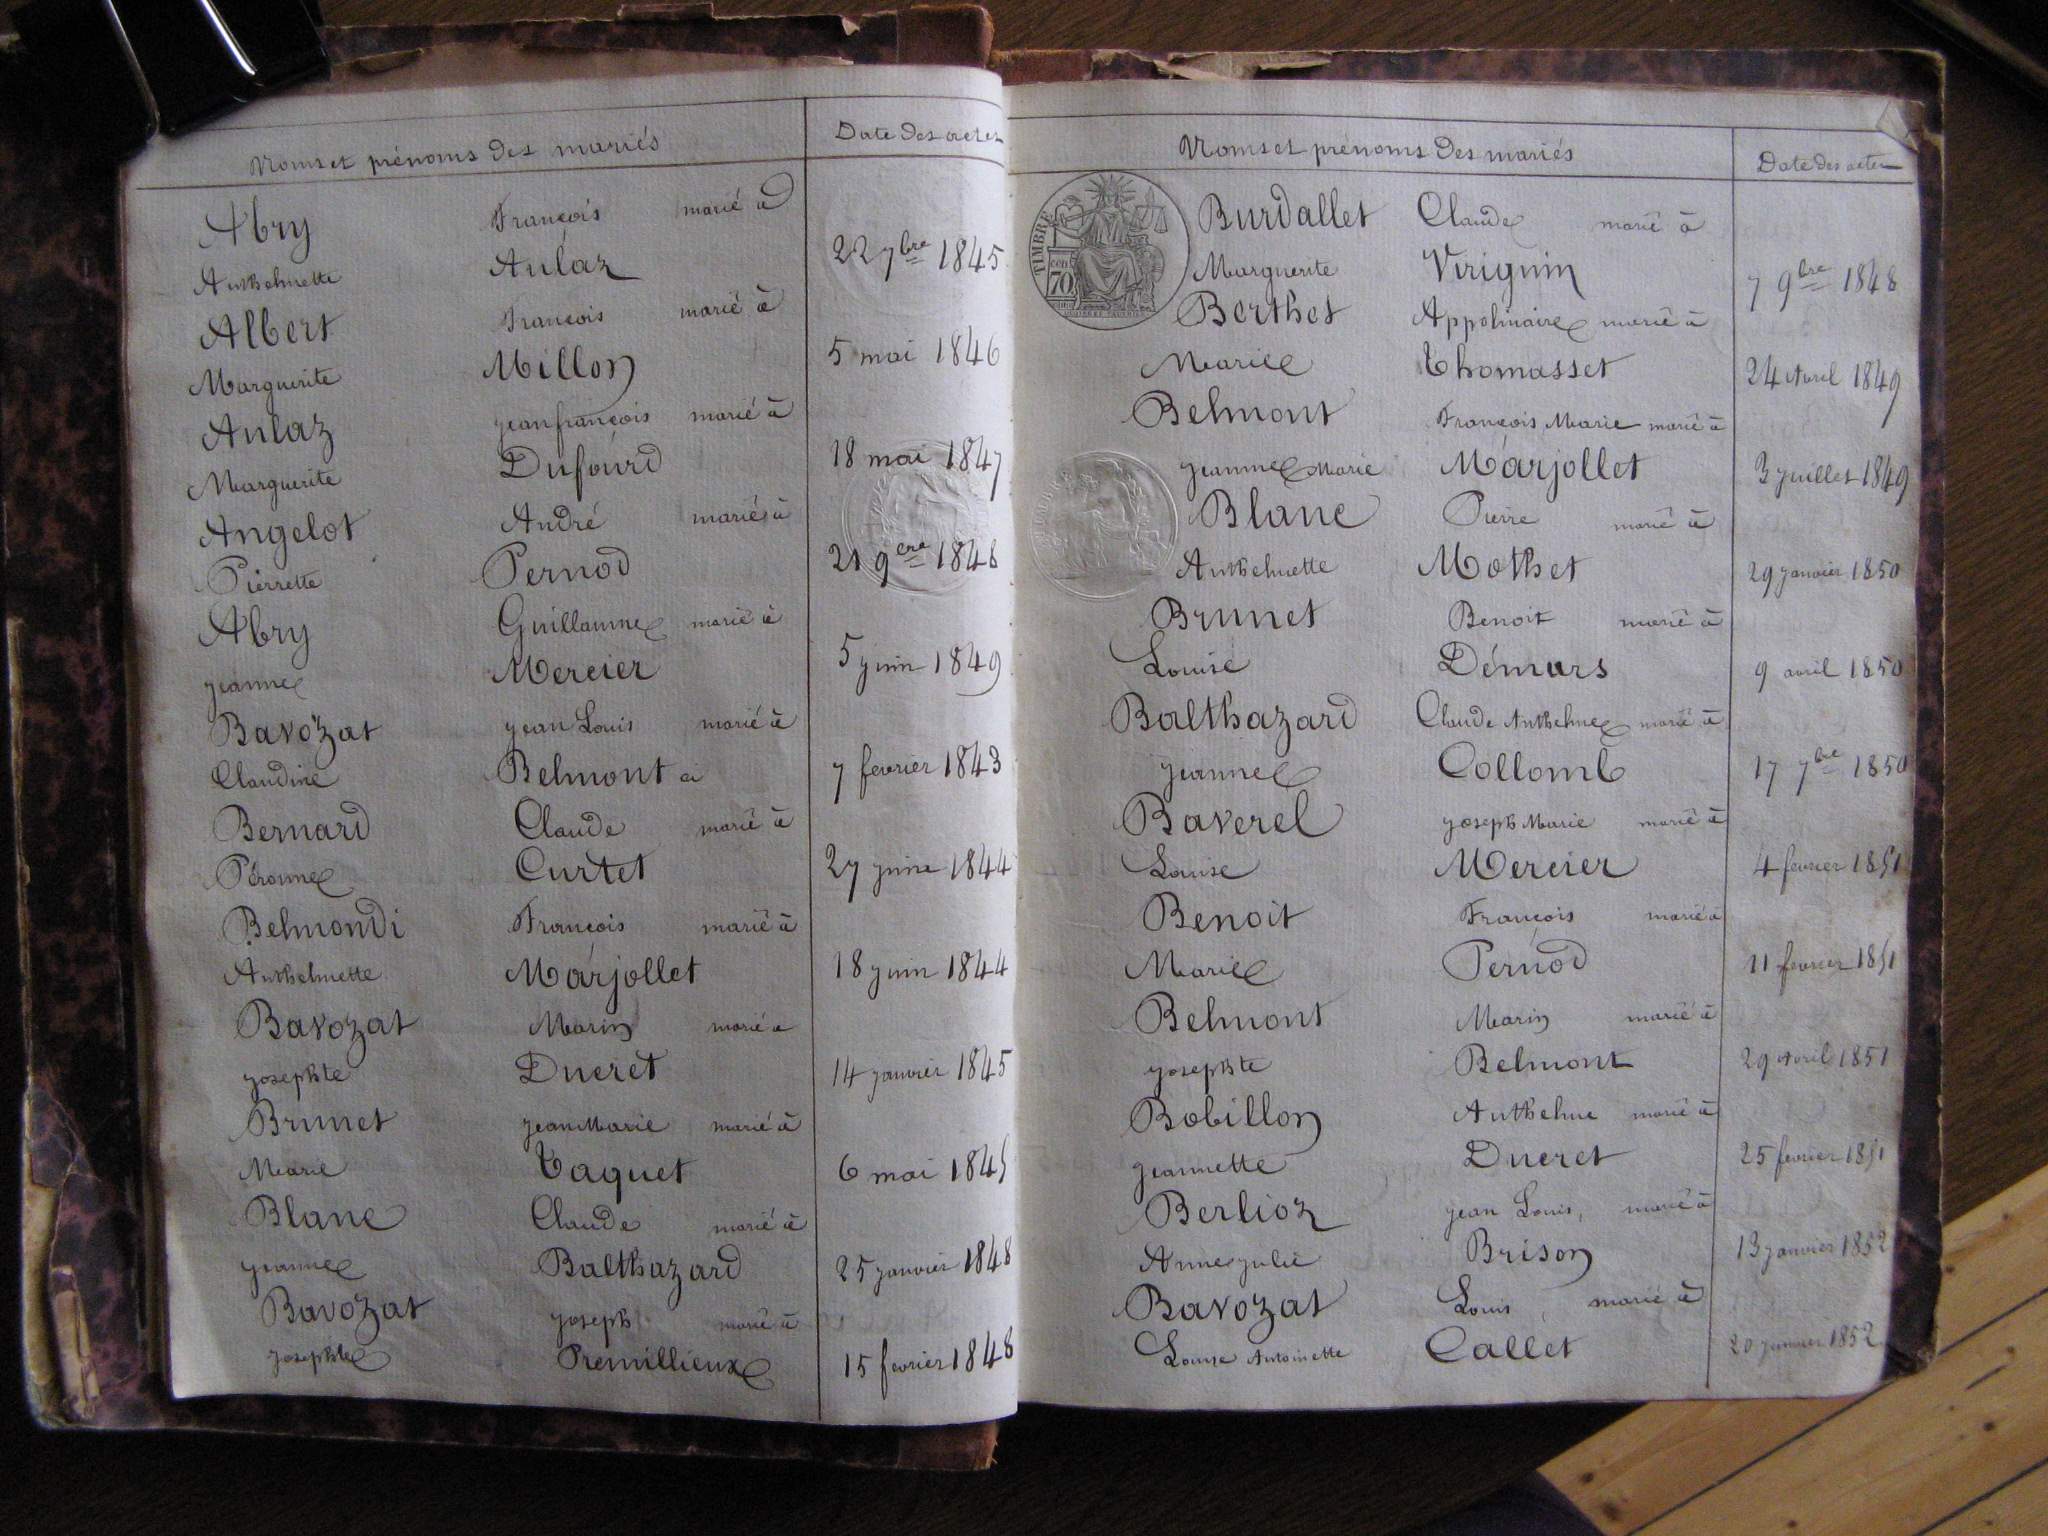 Noms et prénoms des mariés Date des actes
Abry François marié à
Anthelmette Aulaz 22 7bre 1845
Albert François marié à
Marguerite Millon 5 mai 1846
Aulaz jean françois marié à
Marguerite Dufourd 18 mai 1847
Angelot André marié à
Pierrette Pernod 21 9bre 1848
Abry Guillaume marié à
jeanne Mercier 5 juin 1849
Bavozat jean Louis marié à
Claudine Belmont 7 fevrier 1843
Bernard Claude marié à
Péronne Curtet 27 juin 1844
Belmondi François marié à
Anthelmette Marjollet 18 juin 1844
Bavozat Marin marié à
josephte Ducret 14 janvier 1845
Brunet jean Marie marié à
Marie Taquet 6 mai 1845
Blanc Claude marié à
jeanne Balthazard 25 janvier 1848
Bavozat joseph marié à
josephte Premillieux 15 fevrier 1848
Noms et prénoms des mariés Date des actes
TIMBRE
70
Burdallet Claude marié à
Marguerite Viriguin 7 9bre 1848
Berthet Appolinaire marié à
Marie Thomasset 24 Avril 1849
Belmont François Marie marié à
jeanne Marie Marjollet 3 juillet 1849
Blanc Pierre marié à
Anthelmette Mothet 29 janvier 1850
Brunet Benoit marié à
Louise Démurs 9 avril 1850
Balthazard Claude Anthelme marié à
jeanne Collomb 17 7bre 1850
Baverel joseph Marie marié à
Louise Mercier 4 fevrier 1851
Benoit François marié à
Marie Pernod 11 fevrier 1851
Belmont Marin marié à
josephte Belmont 29 Avril 1851
Bobillon Anthelme marié à
jeannette Ducret 25 fevrier 1851
Berlioz jean Louis, marié à
Anne julie Brison 13 janvier 1852
Bavozat Louis, marié à
Louise Antoinette Callet 20 janvier 1852